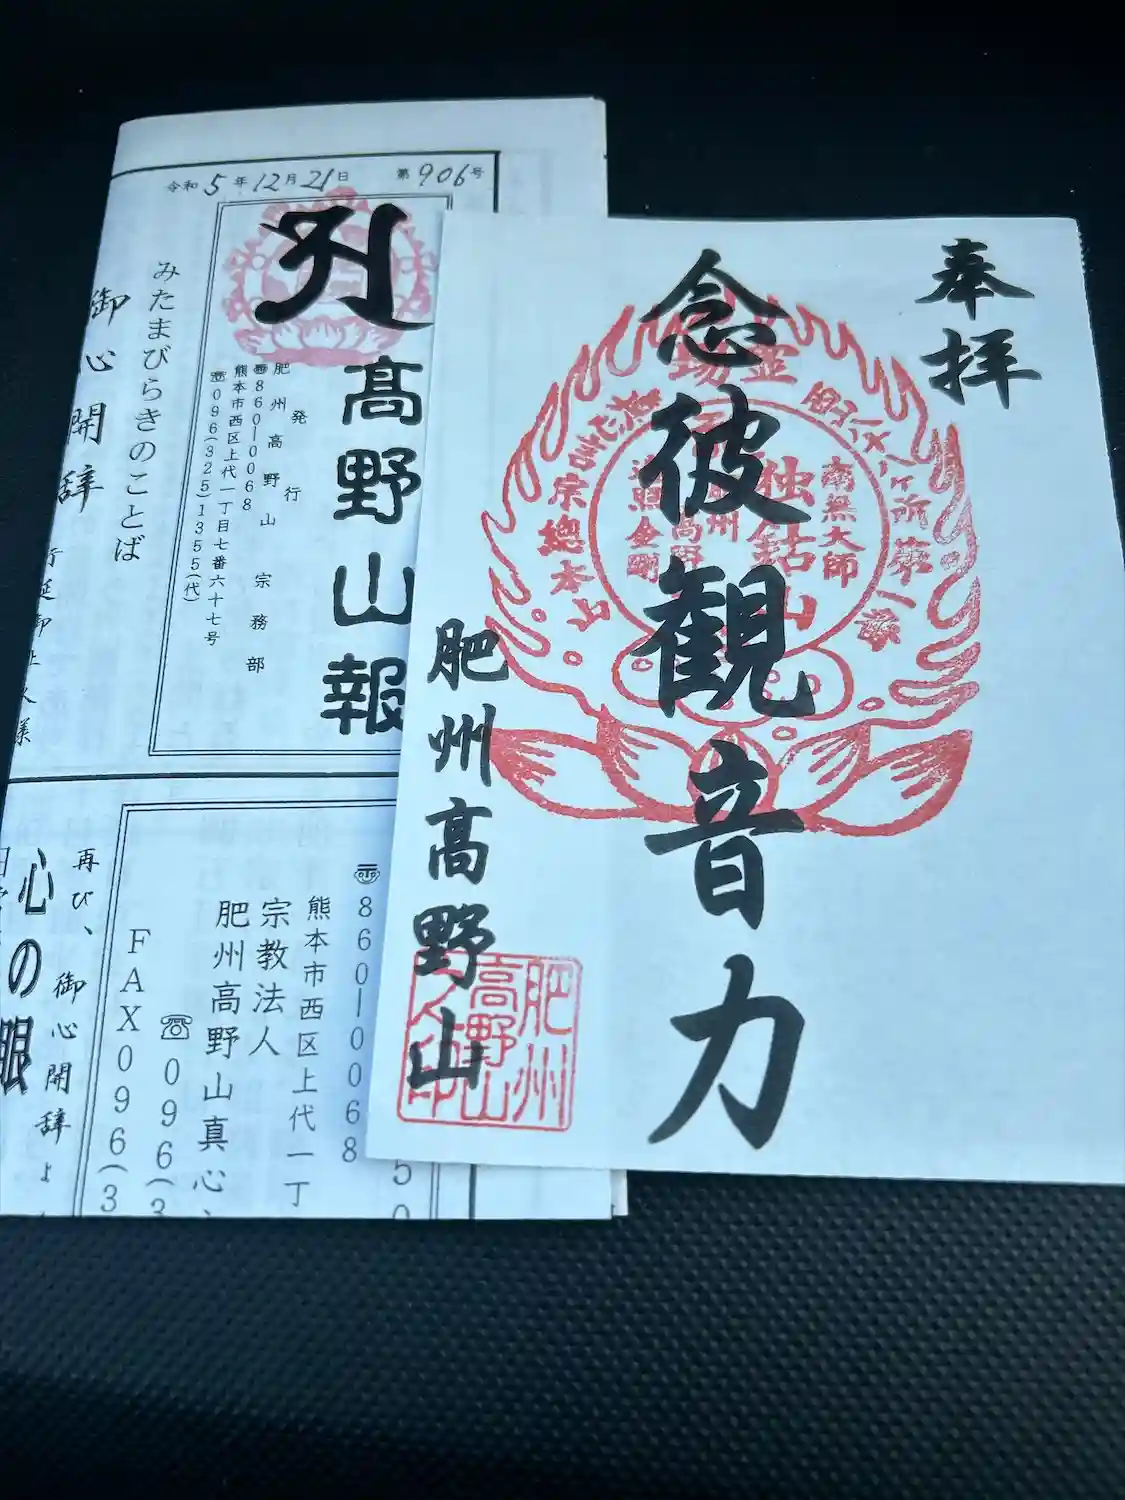 奉拝
念彼観音力
肥州高野山
独鈷山
南無大師
遍照金剛
宗總本山
肥州
高野山
令和5年12月21日
第906号
高野山報
発行
肥州高野山 宗務部
〒860-0068
熊本市西区上代一丁目七番六十七号
☎096(325)1355(代)
みたまびらきのことば
御心開辞
〒860-0068
熊本市西区上代一丁
宗教法人
肥州高野山真心
☎096(3
FAX096(3
再び、御心開辞よ
心の眼